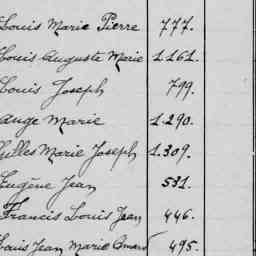 Louis Marie Pierre 777.
Louis Auguste Marie 1.161.
Louis Joseph 799.
Ange Marie 1.290.
Marie Joseph 1.309.
Eugène Jean 531.
Francis Louis Jean 446.
Louis Jean Marie 495.